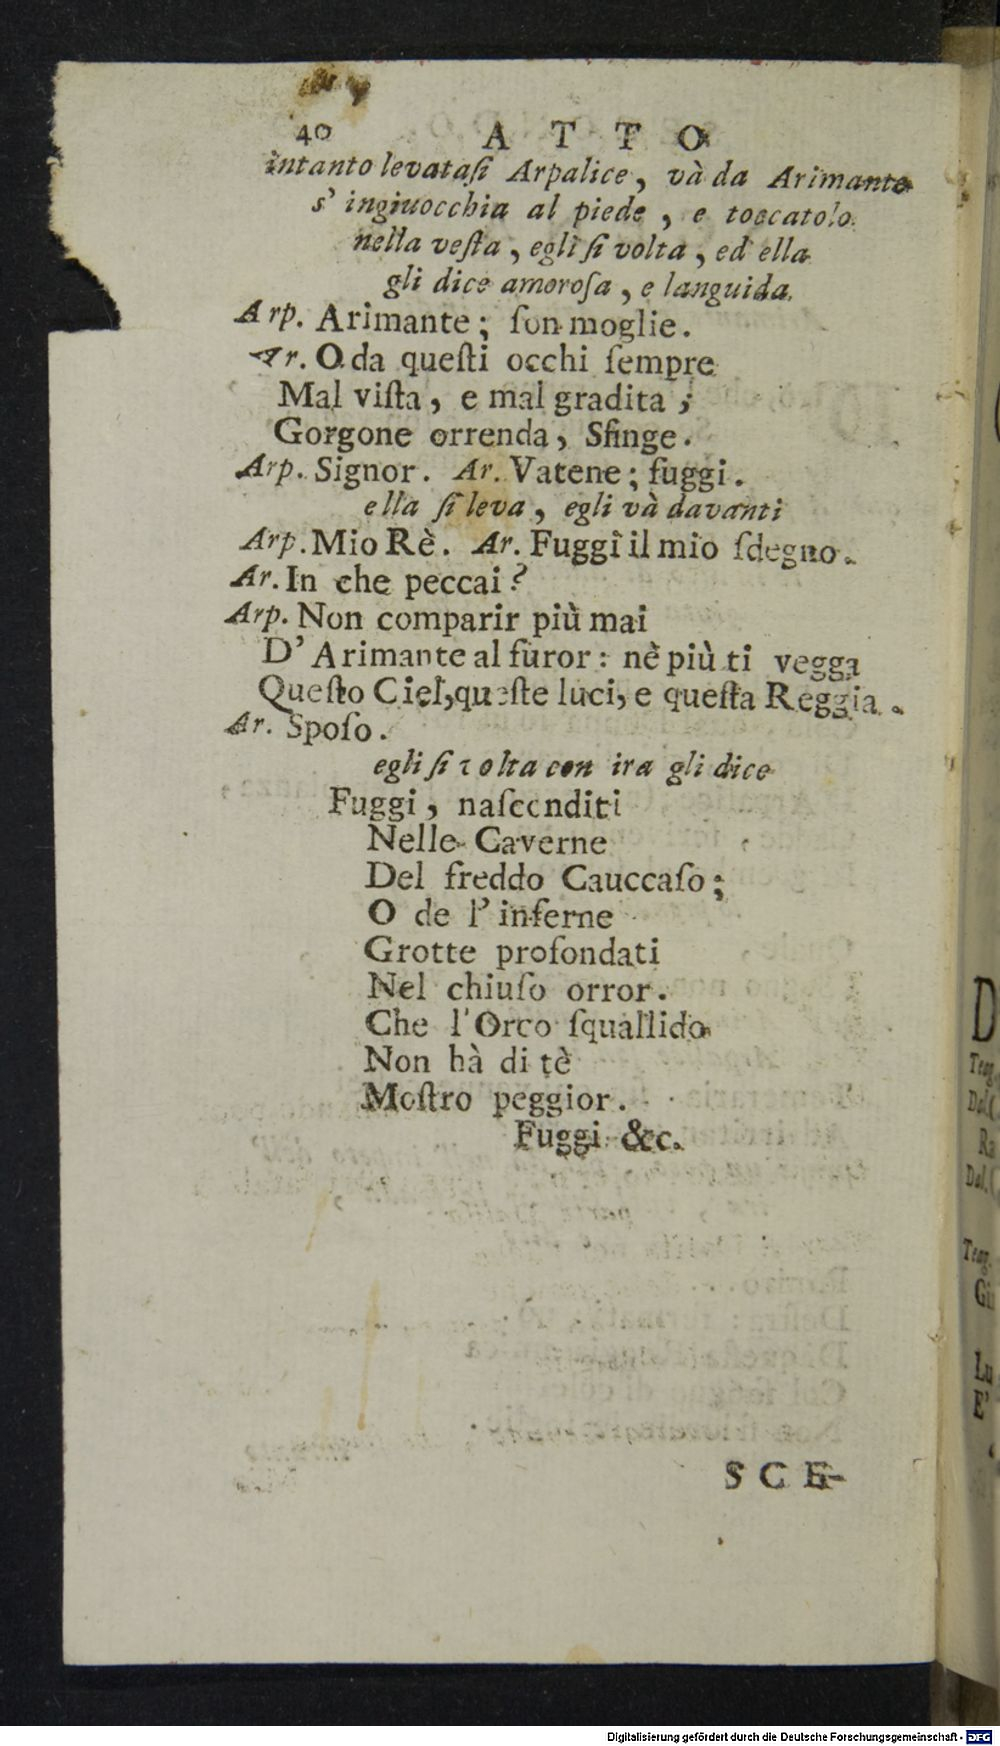 40 ATTO
intanto levataſi Arpalice, và da Arimante
s' ingiuocchia al piede, e toccatolo
nella veſta, egli ſi volta, ed ella
gli dice amoroſa, e languida.
Arp. Arimante; ſon moglie.
Ar. O da queſti occhi ſempre
Mal viſta, e mal gradita;
Gorgone orrenda, Sfinge.
Arp. Signor. Ar. Vatene; fuggi.
ella ſi leva, egli và davanti
Arp. Mio Rè. Ar. Fuggi il mio ſdegno.
Ar. In che peccai?
Arp. Non comparir più mai
D' Arimante al furor: nè più ti vegga
Queſto Ciel, queſte luci, e queſta Reggia.
Ar. Spoſo.
egli ſi volta con ira gli dice
Fuggi, naſconditi
Nelle Caverne
Del freddo Cauccaſo;
O de l' inferne
Grotte profondati
Nel chiuſo orror.
Che l'Orco ſquallido
Non hà di tè
Moſtro peggior.
Fuggi &c.
SCE-
D
Teag.
Dal.
Ra
Dal.
Teag.
Gi
Lu
E'
Digitalisierung gefördert durch die Deutsche Forschungsgemeinschaft - DFG